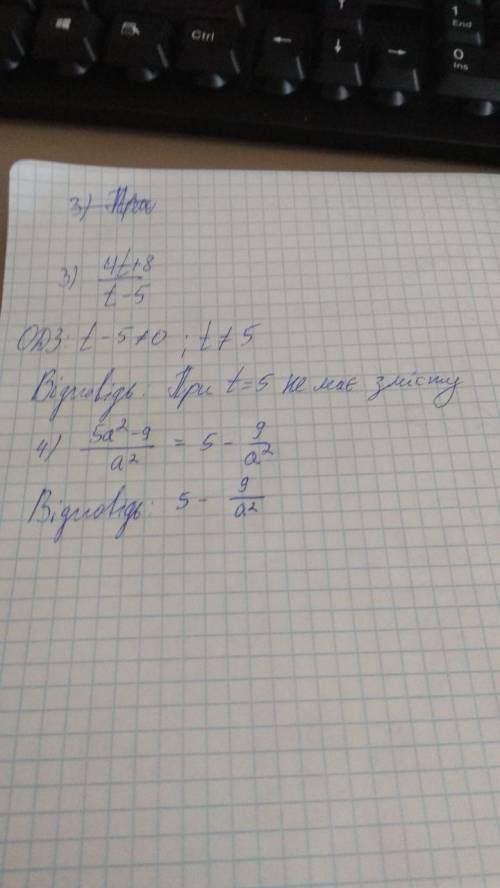 1
End
Ctrl
0
Ins
3)
3) (4t+8)/(t-5)
ОДЗ: t-5≠0 ; t≠5
Відповідь: При t=5 не має змісту
4) (5a²-9)/a² = 5 - 9/a²
Відповідь: 5 - 9/a²